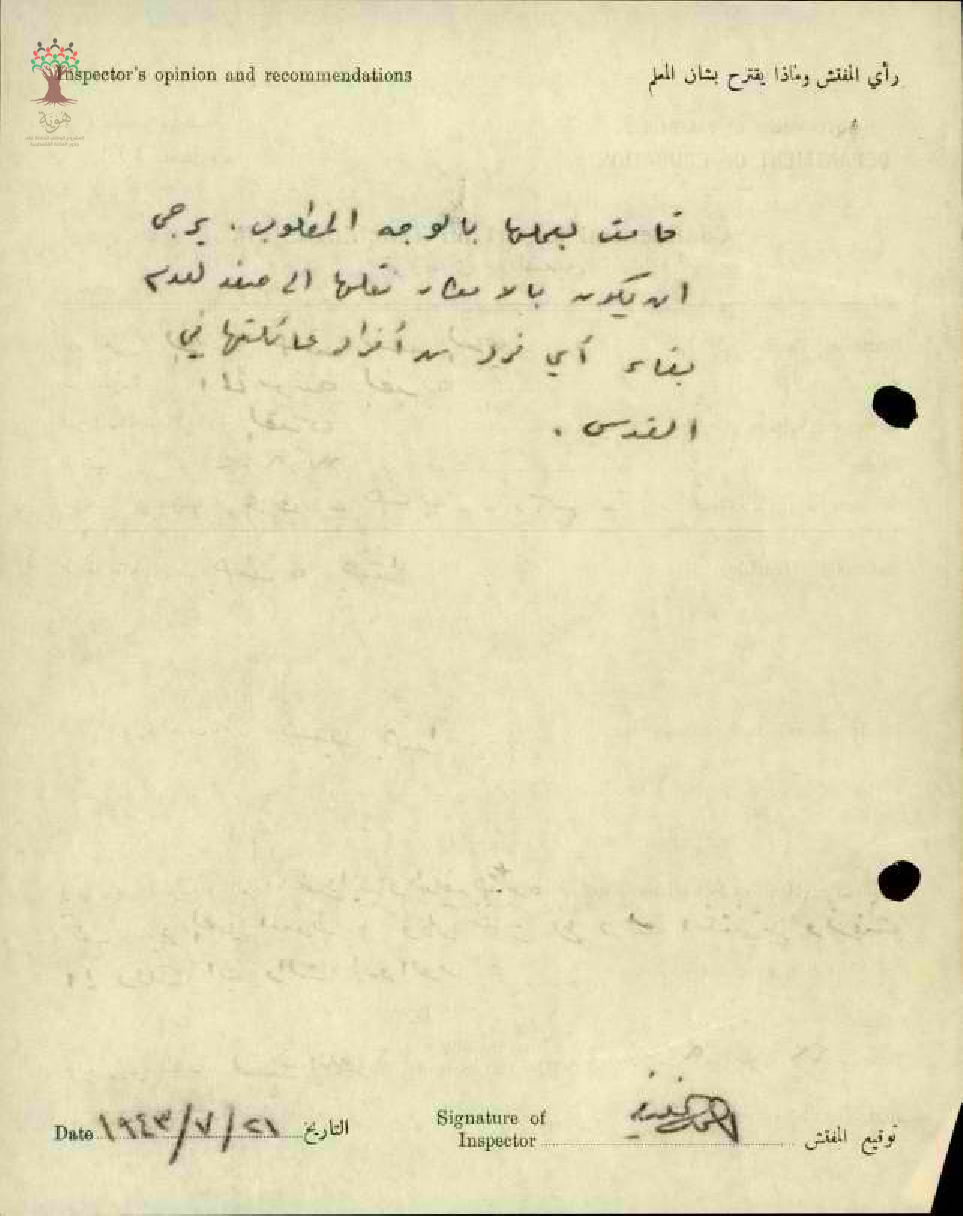 Inspector's opinion and recommendations
رأي المفتش وماذا يقترح بشان المعلم
هوية
قامت بعملها بالوجه المطلوب. يرجى
ان يكون بالامكان نقلها الى صفد لعدم
بقاء أي فرد من أفراد عائلتها في
القدس.
Date ١٩٤٣/٧/٢١ التاريخ
Signature of
Inspector
توقيع المفتش